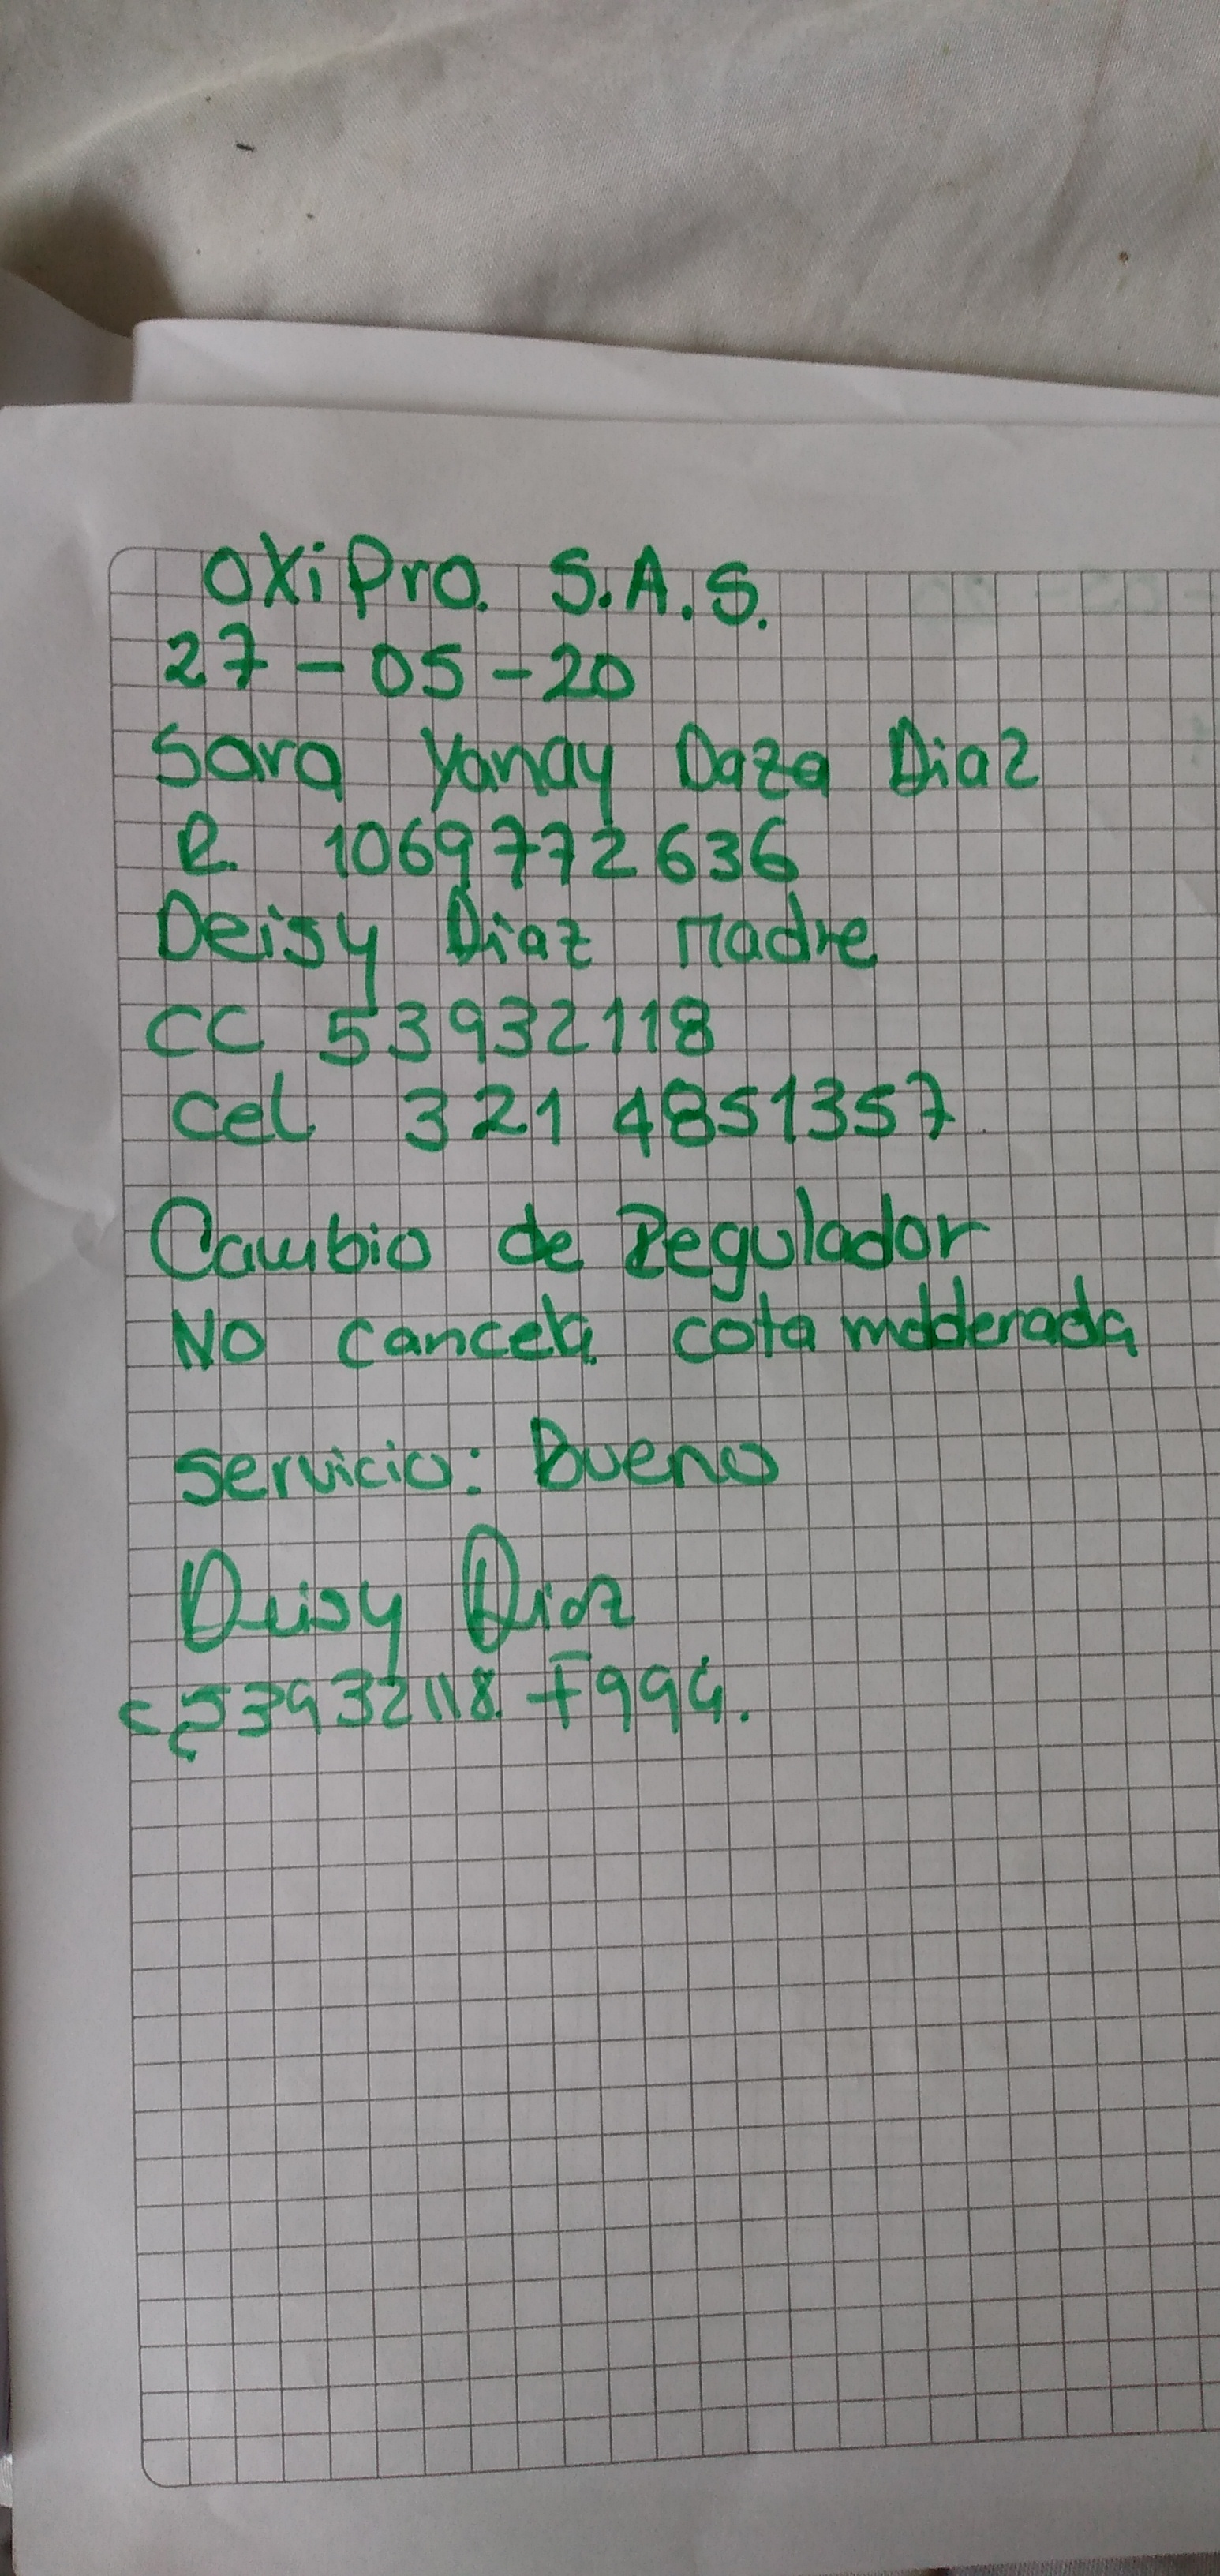 OXiPro. S.A.S.
27-05-20
Sara Yanay Daza Diaz
R. 1069772636
Deisy Diaz Madre
CC 53932118
Cel 321 4851357
Cambio de Regulador
NO cancela cota modderada
Servicio: Bueno
Deisy Diaz
cc 53932118. F994.